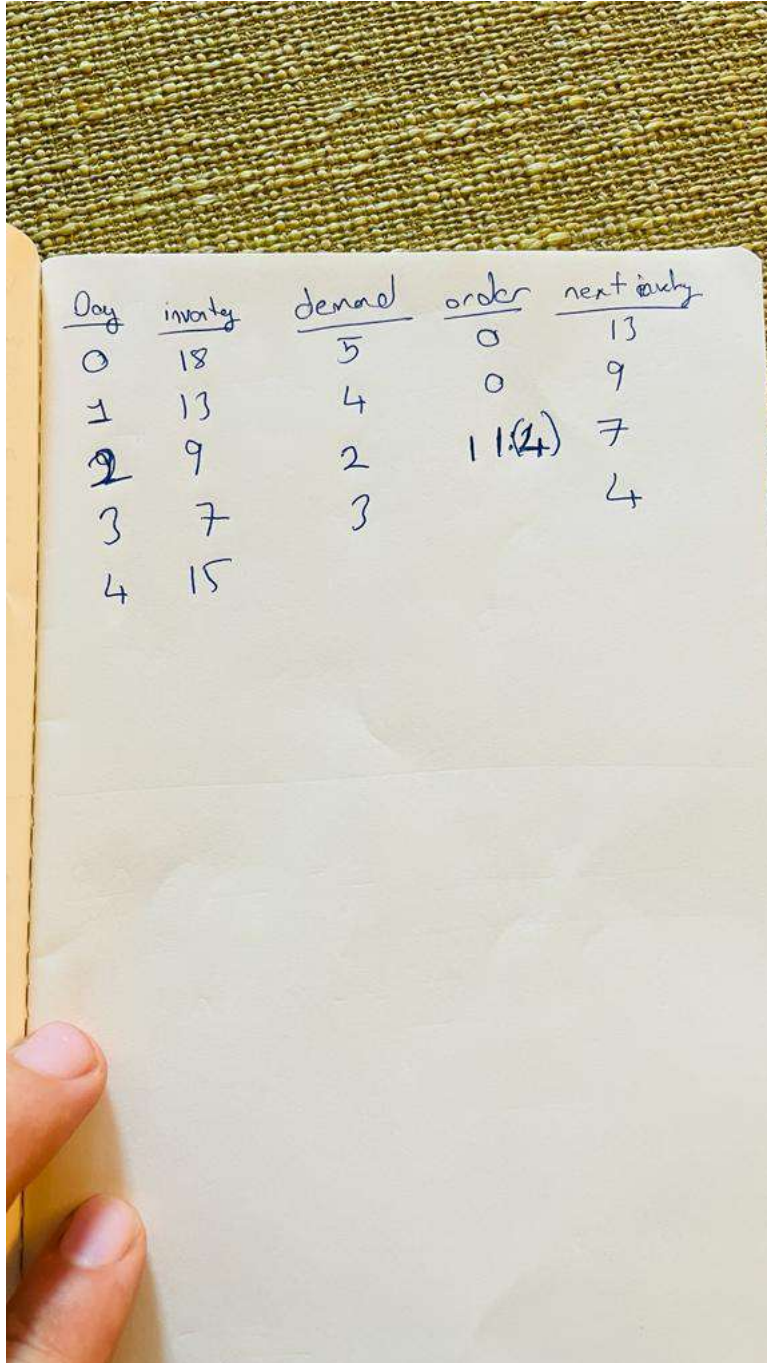 Day invontey demand order next inventy
0 18 5 0 13
1 13 4 0 9
2 9 2 11(4) 7
3 7 3 4
4 15